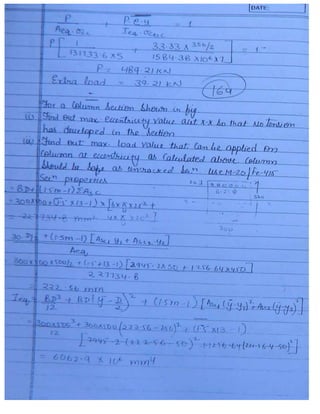 DATE:
P/Aeq.σcc + P.e.y/Ieq.σcbc = 1
P[1/131733.6×5 + 33.33×350/2/1584.38×10⁶×7] = 1
P = 489.21 KN
Extra load = 39.21 KN
169
For a Column Section shown in fig
(i) Find out max. eccentricity value abt x-x so that No tension
has developed in the Section
(ii) Find out max. load value that can be applied on
Column at eccentricity as calculated above. Column
Should be safe as uncracked Secn. use M-20/Fe-415
Secn properties
= BD + (1.5m-1) ΣAsc
= 300×500 + (1.5×13-1)
= 227734.8 mm²
+ (1.5m-1) [Asc1 y1 + Asc2 y2]
Aeq
300×500×500/2 + (1.5×13-1) [2945.2×50 + 1256.64×450]
227734.8
= 222.56 mm
Ieq = BD³/12 + BD(ȳ - D/2)² + (1.5m-1) [Asc1(ȳ-y1)² + Asc2(ȳ-y2)²]
= 300×500³/12 + 300×500(222.56-250)² + (1.5×13-1)
[2945.2(222.56-50)² + 1256.64(222.56-450)²]
= 6062.9 × 10⁶ mm⁴